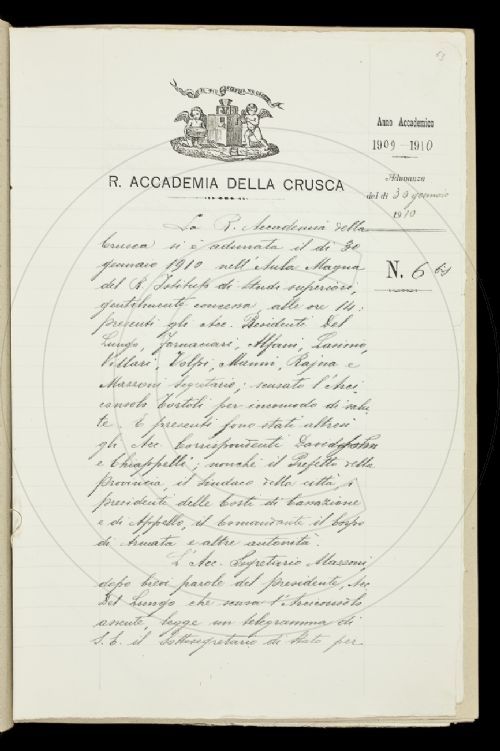 53
Anno Accademico
1909-1910
Adunanza
del dì 30 gennaio
1910
N. 6 bis
R. ACCADEMIA DELLA CRUSCA
La R. Accademia della
Crusca si è adunata il dì 30
gennaio 1910 nell'Aula Magna
del R. Istituto di Studi superiori,
gentilmente concessa, alle ore 14:
presenti gli Acc. Residenti Del
Lungo, Fornaciari, Alfani, Lasinio,
Villari, Volpi, Mannu, Rajna e
Mazzoni segretario; scusato l'Arci-
consolo Tortoli per incomodo di salu-
te. E presenti sono stati altresì
gli Acc. Corrispondenti
e Chiappelli; nonchè il Prefetto della
provincia, il sindaco della città, i
presidenti delle Corti di Cassazione
e di Appello, il Comandante il Corpo
di Armata e altre autorità.
L'Acc. Segretario Mazzoni,
dopo brevi parole del presidente, Acc.
Del Lungo che scusa l'Arciconsolo
assente, legge un telegramma di
S. E. il Sottosegretario di Stato per